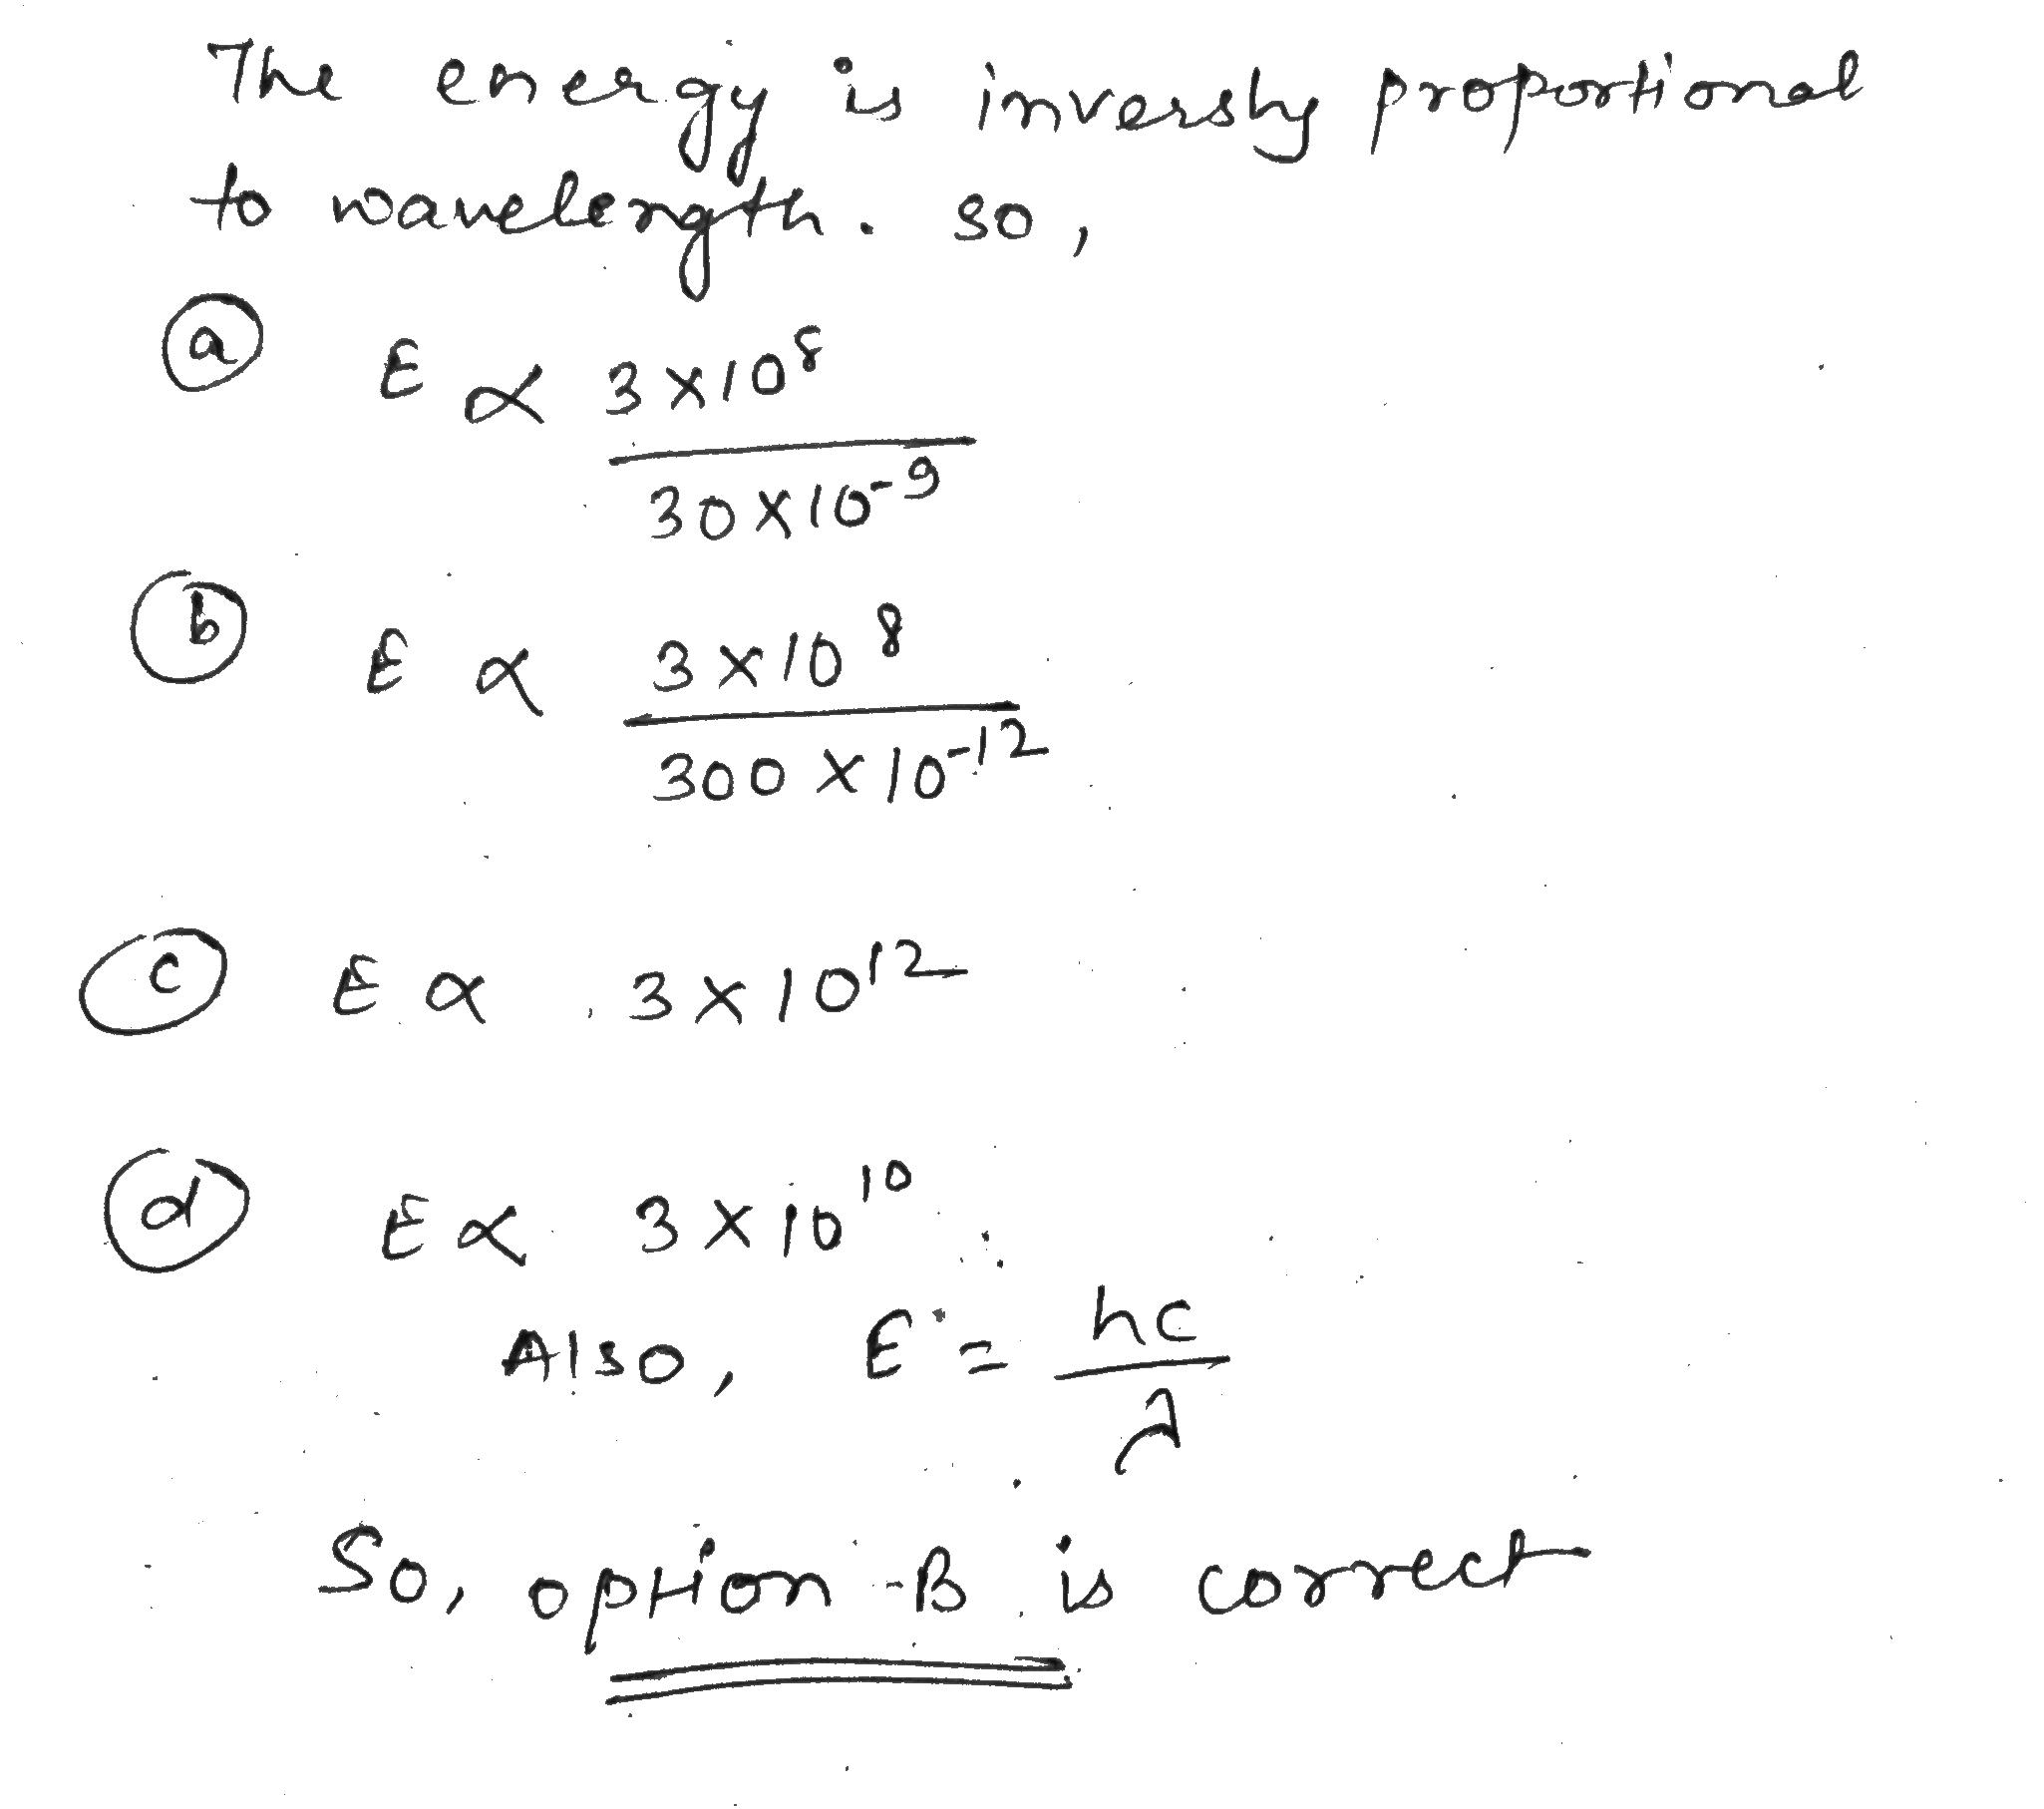 The energy is inversly proportional
to wavelength. so,
(a) E α 3×10⁸
30×10⁻⁹
(b) E α 3×10⁸
300×10⁻¹²
(c) E α 3×10¹²
(d) E α 3×10¹⁰
Also, E = hc
λ
So, option-B is correct